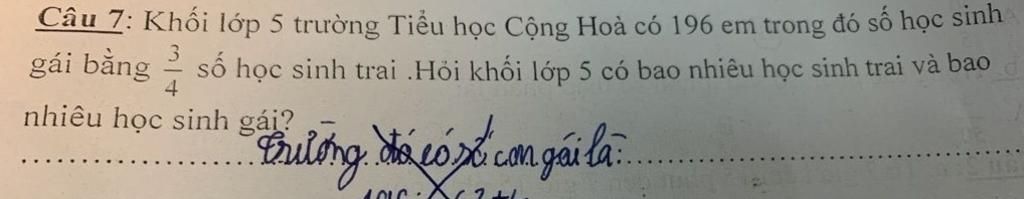 Câu 7: Khối lớp 5 trường Tiểu học Cộng Hoà có 196 em trong đó số học sinh
gái bằng 3/4 số học sinh trai .Hỏi khối lớp 5 có bao nhiêu học sinh trai và bao
nhiêu học sinh gái?
Trường đó có số con gái là: